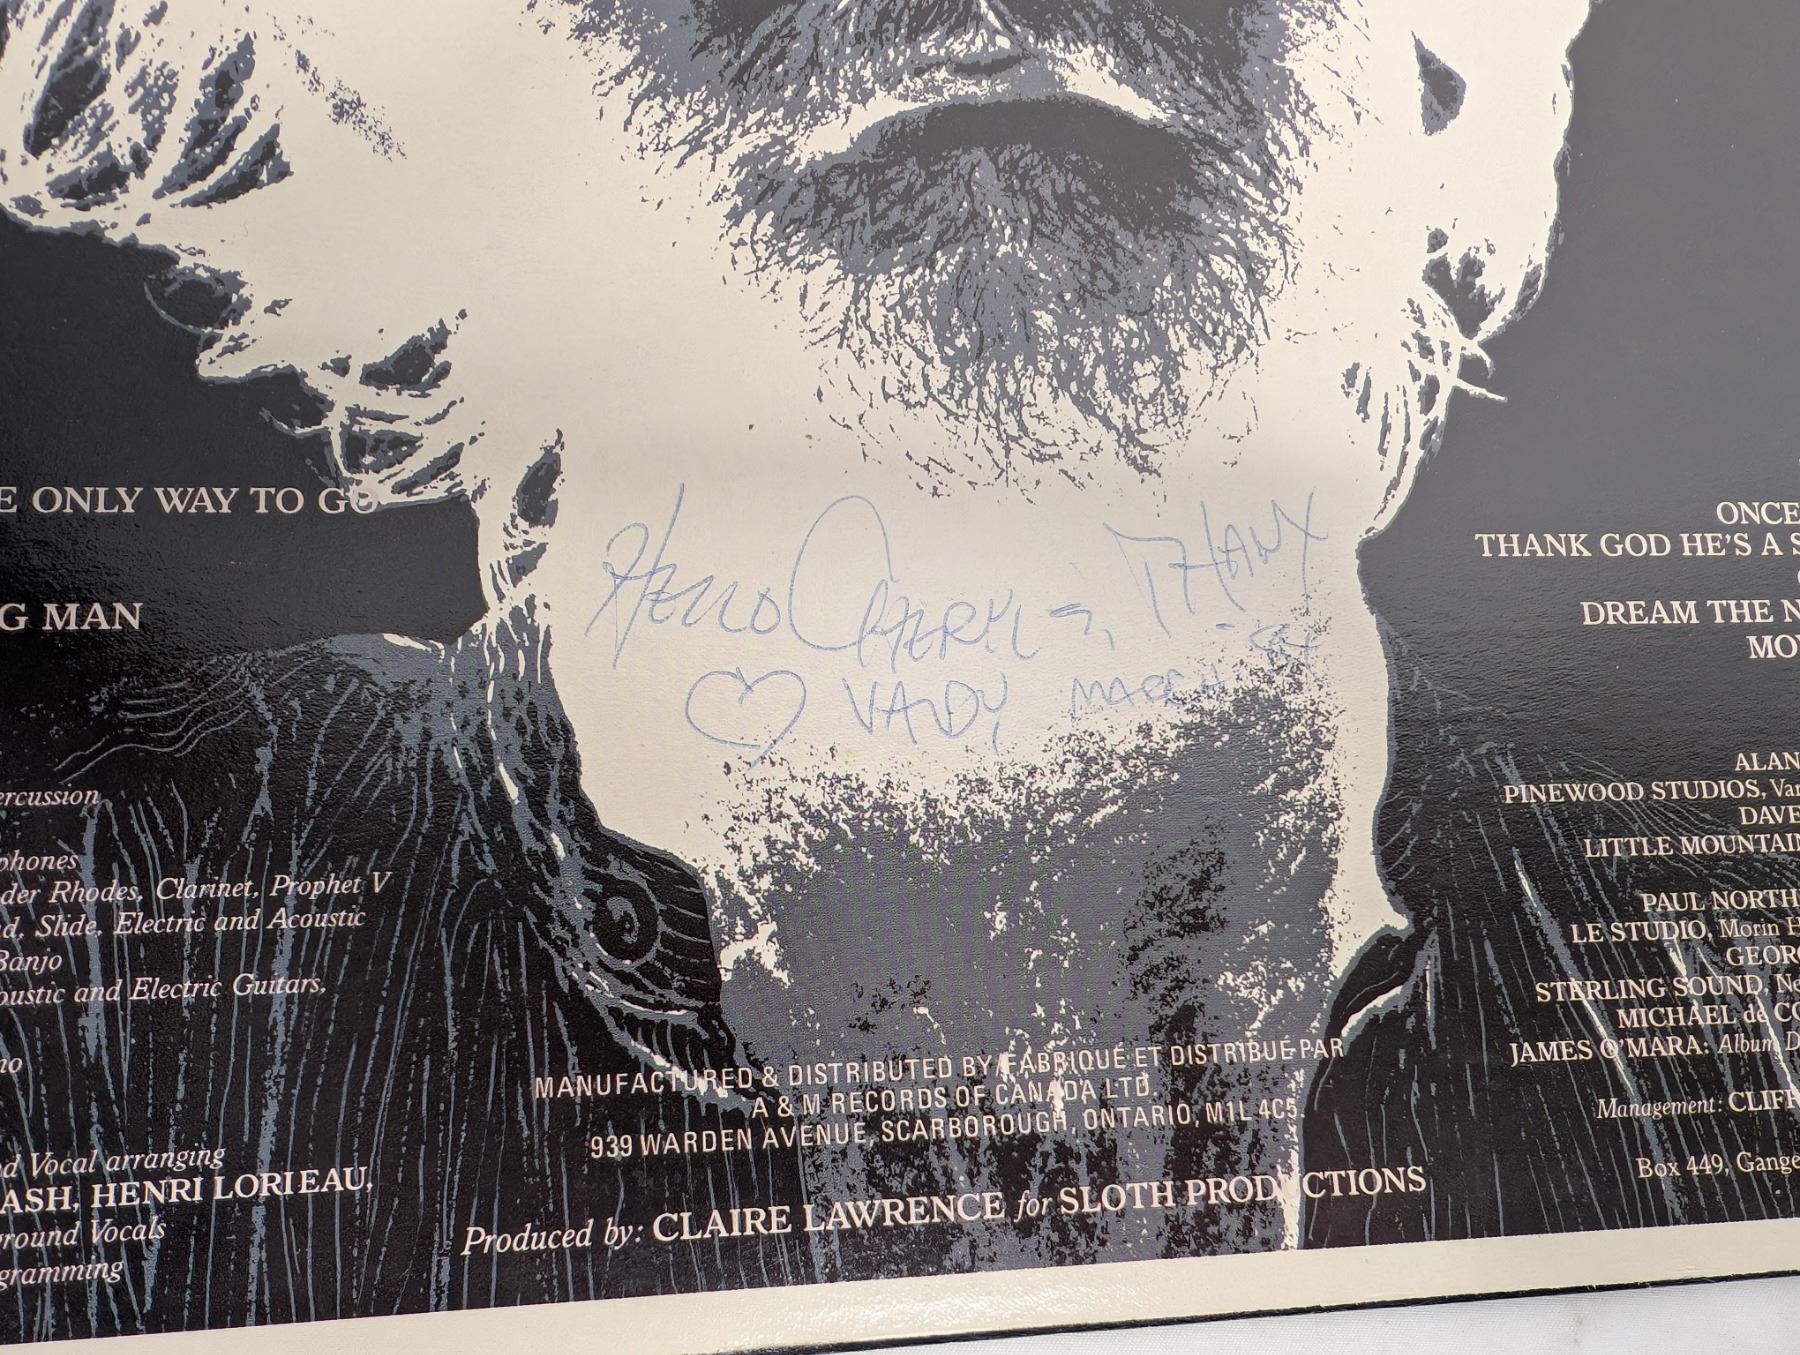 E ONLY WAY TO GO
G MAN
ercussion
phones
der Rhodes, Clarinet, Prophet V
d, Slide, Electric and Acoustic
Banjo
oustic and Electric Guitars,
no
d Vocal arranging
ASH, HENRI LORIEAU,
round Vocals
gramming
HELLO CHERYL
THANX
♡ VALDY MARCH
MANUFACTURED & DISTRIBUTED BY/FABRIQUÉ ET DISTRIBUÉ PAR
A & M RECORDS OF CANADA LTD.
939 WARDEN AVENUE, SCARBOROUGH, ONTARIO, M1L 4C5.
Produced by: CLAIRE LAWRENCE for SLOTH PRODUCTIONS
ONCE
THANK GOD HE'S A S
DREAM THE N
MO
ALAN
PINEWOOD STUDIOS, Van
DAVE
LITTLE MOUNTAIN
PAUL NORTH
LE STUDIO, Morin H
GEORG
STERLING SOUND, Ne
MICHAEL de CO
JAMES O'MARA: Album D
Management: CLIFF
Box 449, Gange